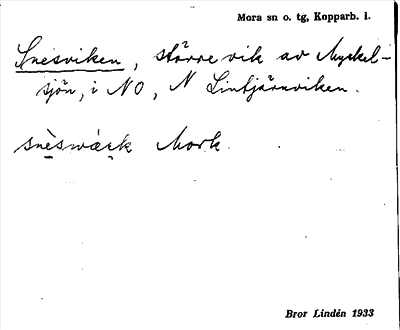 Mora sn o. tg, Kopparb. l.
Snesviken, större vik av Myckel-
sjön, i NO, N Lintjärnviken.
Mork.
Bror Lindén 1933